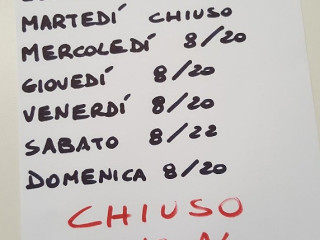 MARTEDÍ CHIUSO
MERCOLEDÍ 8/20
GIOVEDÍ 8/20
VENERDÍ 8/20
SABATO 8/22
DOMENICA 8/20
CHIUSO